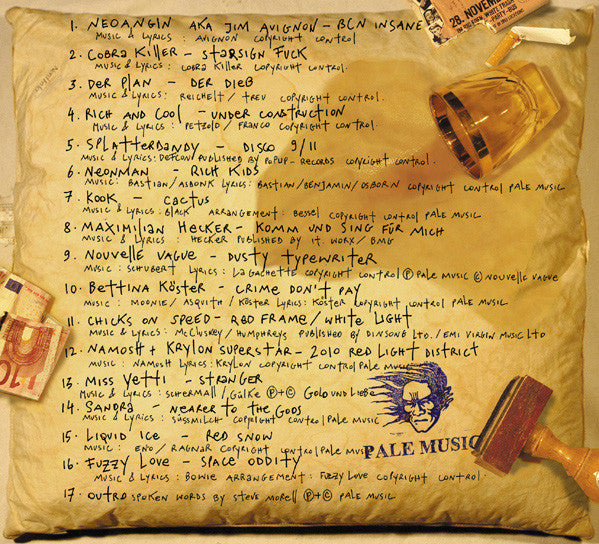 28. NOVEMB
1. NEOANGIN AKA JIM AVIGNON - BCN INSANE
MUSIC & LYRICS : AVIGNON COPYRIGHT CONTROL
2. COBRA KILLER - STARSIGN FUCK
MUSIC & LYRICS : COBRA KILLER COPYRIGHT CONTROL.
3. DER PLAN - DER DIEB
MUSIC & LYRICS : REICHELT / TREU COPYRIGHT CONTROL.
4. RICH AND COOL - UNDER CONSTRUCTION
MUSIC & LYRICS : PETZOLD / FRANCO COPYRIGHT CONTROL.
5. SPLATTERDANDY - DISCO 9/11
MUSIC & LYRICS: DEFCON PUBLISHED BY POPUP - RECORDS COPYRIGHT CONTROL.
6. NEONMAN - RICH KIDS
MUSIC: BASTIAN / ASBONK LYRICS: BASTIAN/BENJAMIN/OSBORN COPYRIGHT CONTROL PALE MUSIC
7. KOOK - CACTUS
MUSIC & LYRICS: BLACK ARRANGEMENT: BESSEL COPYRIGHT CONTROL PALE MUSIC
8. MAXIMILIAN HECKER - KOMM UND SING FÜR MICH
MUSIC & LYRICS : HECKER PUBLISHED BY IT. WORX / BMG
9. NOUVELLE VAGUE - DUSTY TYPEWRITER
MUSIC: SCHUBERT LYRICS: LAGACHETTE COPYRIGHT CONTROL ℗ PALE MUSIC © NOUVELLE VAGUE
10. BETTINA KÖSTER - CRIME DON'T PAY
MUSIC : MOONIE / ASQUITH / KÖSTER LYRICS: KÖSTER COPYRIGHT CONTROL PALE MUSIC
11. CHICKS ON SPEED - RED FRAME / WHITE LIGHT
MUSIC & LYRICS : MCCLUSKEY / HUMPHREYS PUBLISHED BY DINSONG LTD. / EMI VIRGIN MUSIC LTD
12. NAMOSH + KRYLON SUPERSTAR - 2010 RED LIGHT DISTRICT
MUSIC : NAMOSH LYRICS: KRYLON COPYRIGHT CONTROL PALE MUSIC
13. MISS YETTI - STRANGER
MUSIC & LYRICS : SCHERMALL / GÜLKE ℗+© GOLD UND LIEBE
14. SANDRA - NEARER TO THE GODS
MUSIC & LYRICS : SÜSSMILCH COPYRIGHT CONTROL PALE MUSIC
15. LIQUID ICE - RED SNOW
MUSIC : ENO / RAGNAR COPYRIGHT CONTROL PALE MUSIC
PALE MUSIC
16. FUZZY LOVE - SPACE ODDITY
MUSIC & LYRICS : BOWIE ARRANGEMENT: FUZZY LOVE COPYRIGHT CONTROL.
17. OUTRO SPOKEN WORDS BY STEVE MORELL ℗+© PALE MUSIC
10